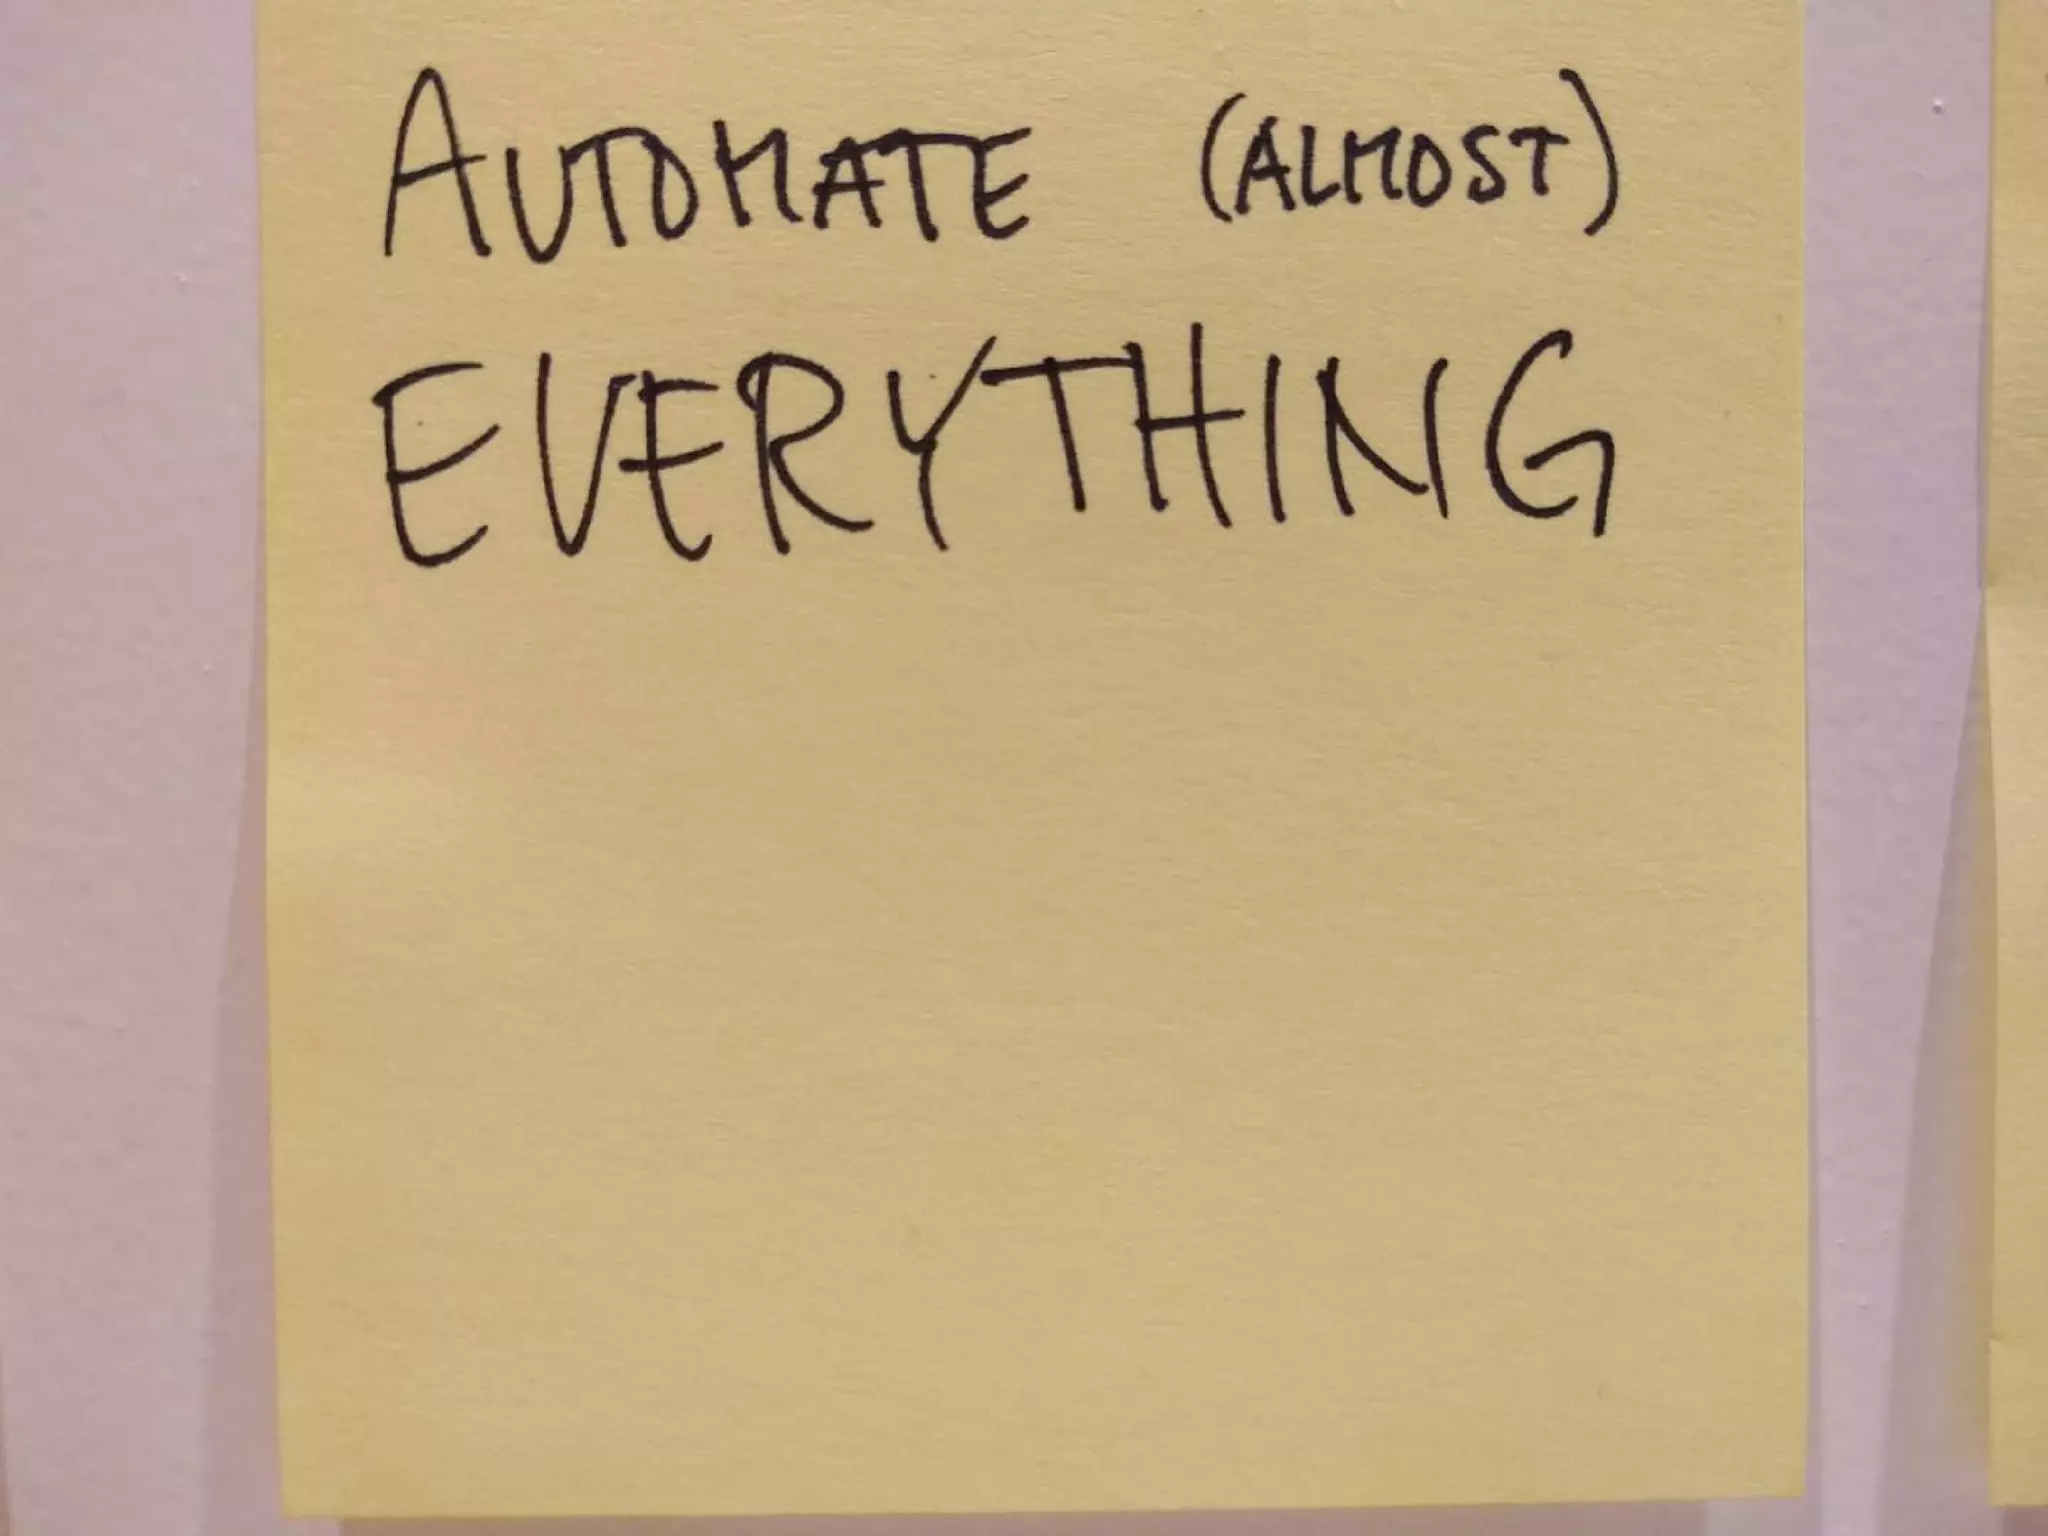 AUTOMATE (ALMOST)
EVERYTHING